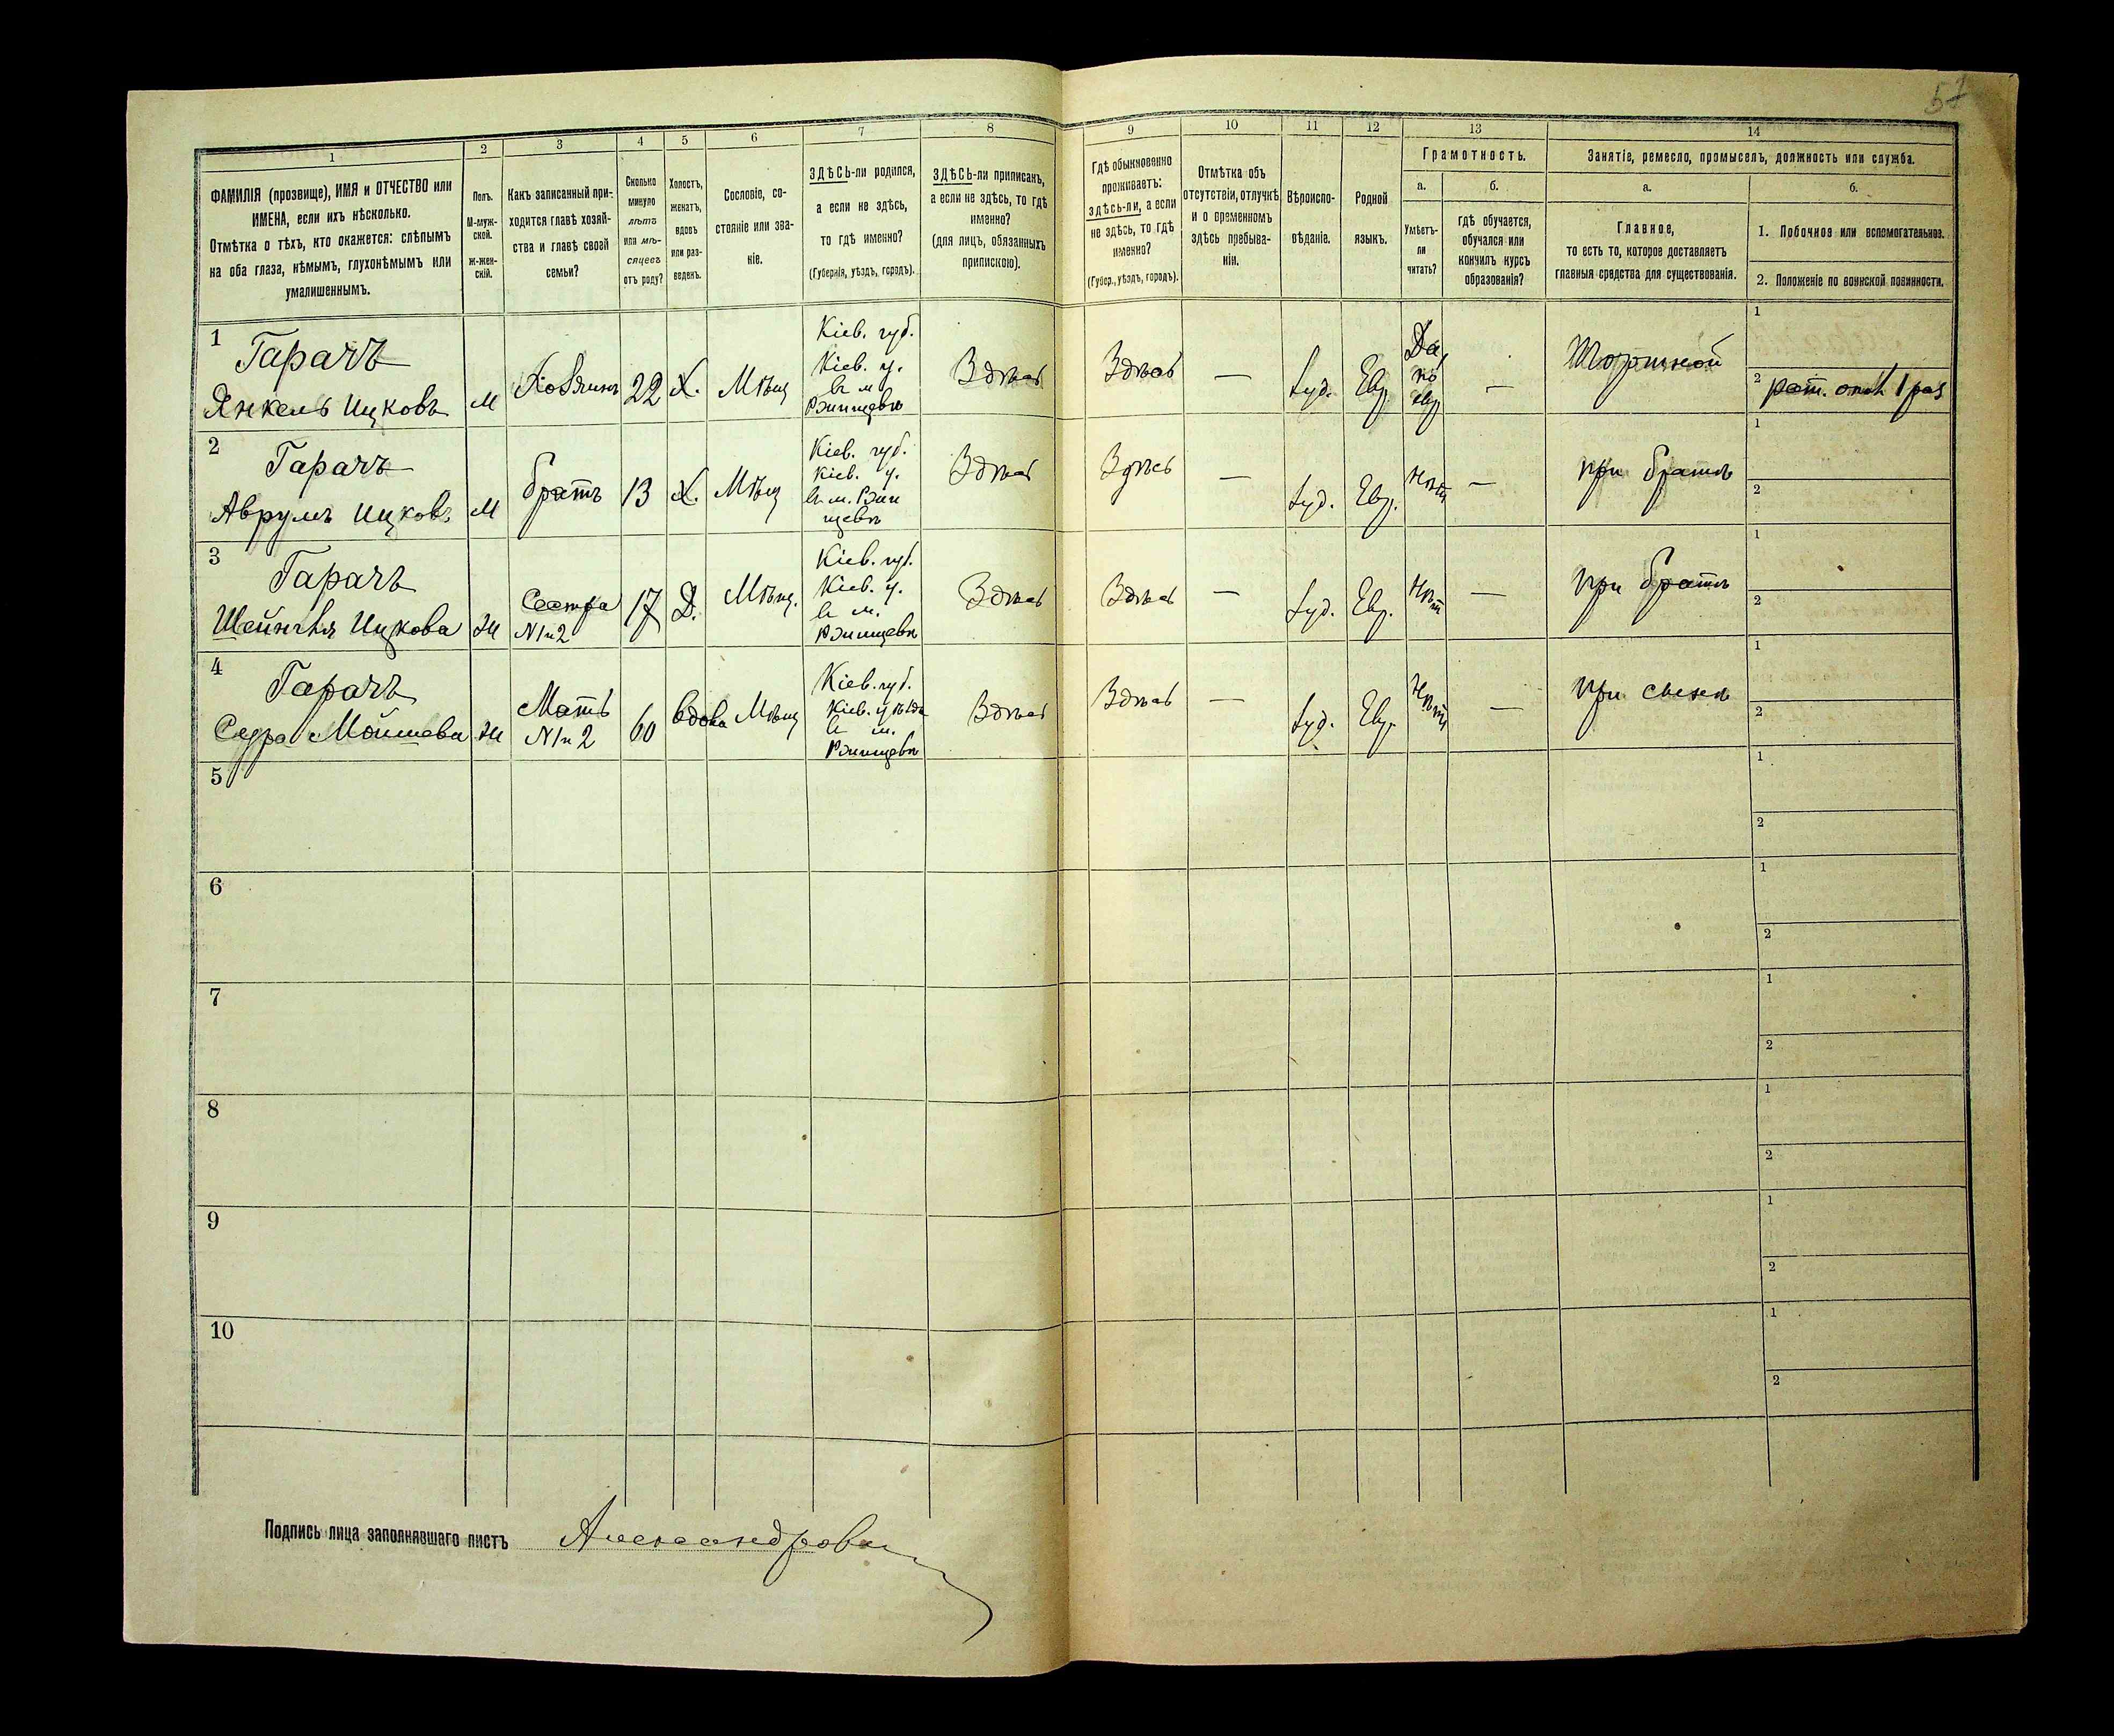 57
1
2
3
4
5
6
7
8
9
10
11
12
13
14
ФАМИЛІЯ (прозвище), ИМЯ и ОТЧЕСТВО или
ИМЕНА, если ихъ нѣсколько.
Отмѣтка о тѣхъ, кто окажется: слѣпымъ
на оба глаза, нѣмымъ, глухонѣмымъ или
умалишеннымъ.
Полъ.
М-муж-
ской.
Ж-жен-
скій.
Какъ записанный при-
ходится главѣ хозяй-
ства и главѣ своей
семьи?
Сколько
минуло
лѣтъ
или мѣ-
сяцевъ
отъ роду?
Холостъ,
женатъ,
вдовъ
или раз-
веденъ.
Сословіе, со-
стояніе или зва-
ніе.
ЗДѢСЬ-ли родился,
а если не здѣсь,
то гдѣ именно?
(Губернія, уѣздъ, городъ).
ЗДѢСЬ-ли приписанъ,
а если не здѣсь, то гдѣ
именно?
(для лицъ, обязанныхъ
припискою).
Гдѣ обыкновенно
проживаетъ:
здѣсь-ли, а если
не здѣсь, то гдѣ
именно?
(Губер., уѣздъ, городъ).
Отмѣтка объ
отсутствіи, отлучкѣ
и о временномъ
здѣсь пребыва-
ніи.
Вѣроиспо-
вѣданіе.
Родной
языкъ.
Грамотность.
а.
Умѣетъ-
ли
читать?
б.
гдѣ обучается,
обучался или
кончилъ курсъ
образованія?
Занятіе, ремесло, промыселъ, должность или служба.
а.
Главное,
то есть то, которое доставляетъ
главныя средства для существованія.
б.
1. Побочное или вспомогательное.
2. Положеніе по воинской повинности.
1
Гарачъ
Янкель Ицковъ
М
Хозяинъ
22
Х.
Мѣщ
Кіев. губ.
Кіев. у.
въ м
Ржищевѣ
Здѣсь
Здѣсь
—
Іуд.
Евр.
Да
по
евр
—
1
2
рат. опол. 1 раз
2
Гарачъ
Аврумъ Ицковъ
М
братъ
13
Х.
Мѣщ
Кіев. губ.
Кіев. у.
въ м. Ржи
щевѣ
Здѣсь
Здѣсь
—
Іуд.
Евр.
Нѣтъ
—
при братѣ
1
2
3
Гарачъ
Ицкова
Ж
Сестра
N1и2
17
Д.
Мѣщ.
Кіев. губ.
Кіев. у.
въ м.
Ржищевѣ
Здѣсь
Здѣсь
—
Іуд.
Евр.
Нѣт
—
при братѣ
1
2
4
Гарачъ
Мошева
Ж
Мать
N1и2
60
вдова
Мѣщ
Кіев. губ.
Кіев. уѣзда
въ м.
Ржищевѣ
Здѣсь
Здѣсь
—
Іуд.
Евр.
Нѣтъ
—
при сынѣ
1
2
5
1
2
6
1
2
7
1
2
8
1
2
9
1
2
10
1
2
Подпись лица заполнявшаго листъ